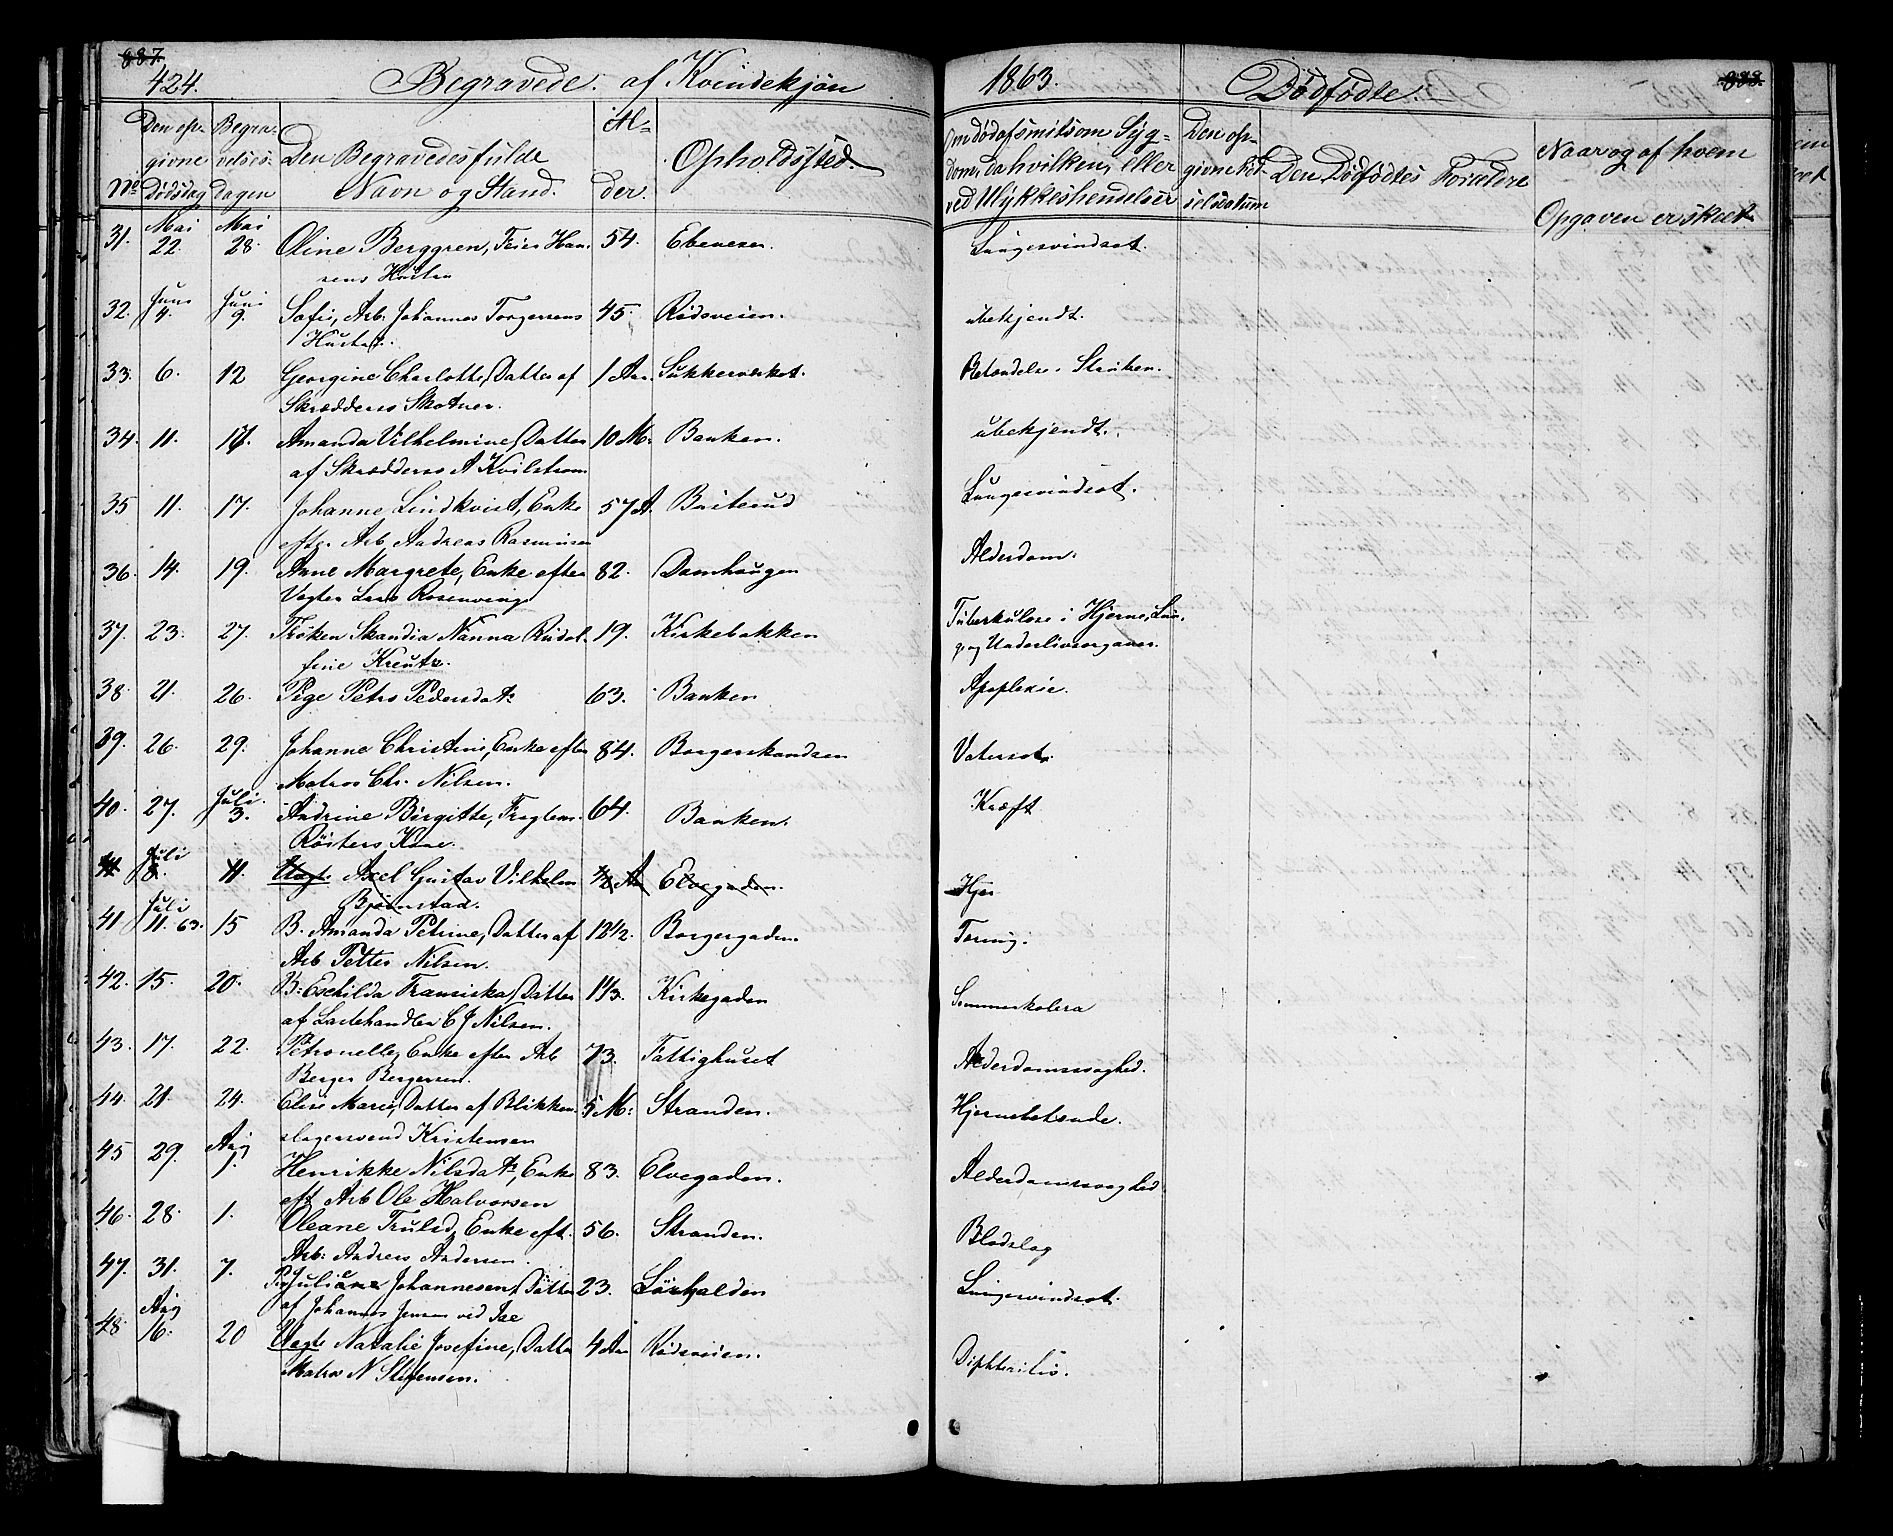 887.
424. Begravede af Kvindekjøn
No
Den opgivne Dødsdag
Begravelsesdagen
Den Begravedes fulde Navn og Stand.
Alder.
Opholdssted.
31. Mai 22. Mai 28. Oline Berggren, Feier Han- 54. Ebeneser.
sens Hustru
32. Juni 4. Juni 9. Sofie, Arb. Johannes Torgersens 45. Rödsveien.
Hustru.
33. 6. 12 Georgine Charlotte, Datter af 1 Aar. Sukkerverket.
Skrædders Skotner.
34. 11. 17. Amanda Vilhelmine, Datter 10 M: Banken.
af Skrædders A Kvilstrom
35 11. 17. Johanne Lindkvist, Enke 57 A. Busterud
efter Arb Andreas Rasmussen
36. 14. 19. Anne Margrete, Enke efter 82. Damhaugen
Vegter Lars Rosenvinge
37. 23. 27. Frøken Skandia Nanna Rudol- 19. Kirkebakken
fine Kreutz.
38. 21. 26. Pige Petra Pedersdatr 63. Banken
39. 26. 29. Johanne Christine, Enke efter 84. Borgerskandsen
Matros Chr. Nilsen.
40. 27. Juli 3. Andrine Birgitte, 64. Banken.
Kone.
41 Juli 8. 11. Uegte Axel Gustav Vilhelm 1/2 A Elvegaden.
Bjørnstad.
41. Juli 11. 63. 15 B. Amanda Petrine, Datter af 12 1/2. Borgergaden
Arb Petter Nilsen.
42. 15. 20. B: Eschilda Fransiska, Datter 1 1/3. Kirkegaden
af Lastehandler C J Nilsen.
43. 17. 22. Petronelle, Enke efter Arb 73. Fattighuset
Berger Bergersen.
44. 21. 24. Elise Marie, Datter af Blikken- 5 M: Stranden.
slagersvend Kristensen
45 29. Aug 1. Henrikke Nilsdatr, Enke 83. Elvegaden.
eft Arb Ole Halvorsen
46. 28. 1. Oleane Trulsd, Enke eft. 56. Stranden.
Arb: Andreas Andersen.
47. 31. 7. Juliane Johannesen, Datter 23. Sörhalden
af Johannes Jensen ved
48. Aug 16. 20 Uegte Natalie Josefine, Datter 4 Aar Rödsveien.
Matros N Stefensen.
1863. Dödfödte. 888.
Om död af smitsom Syg-
dom, da hvilken, eller
ved Ulykkeshendelser
Den opgivne Födselsdatum
Den Dödfödtes Forældre
Naar og af hvem
Opgaven er skeet
Lungesvindsot.
ubekjendt.
Betændelse i Struben.
ubekjendt.
Lungesvindsot.
Alderdom.
Tuberkulose i Hjerne, Lun-
ge og Underlivsorganer.
Apoplexie.
Vatersot.
Kræft
Hjer
Tæring.
Sommerkolera
Alderdomssvaghed.
Hjernebetende.
Alderdomssvaghed
Blodslag
Lungesvindsot.
Diphteritis.